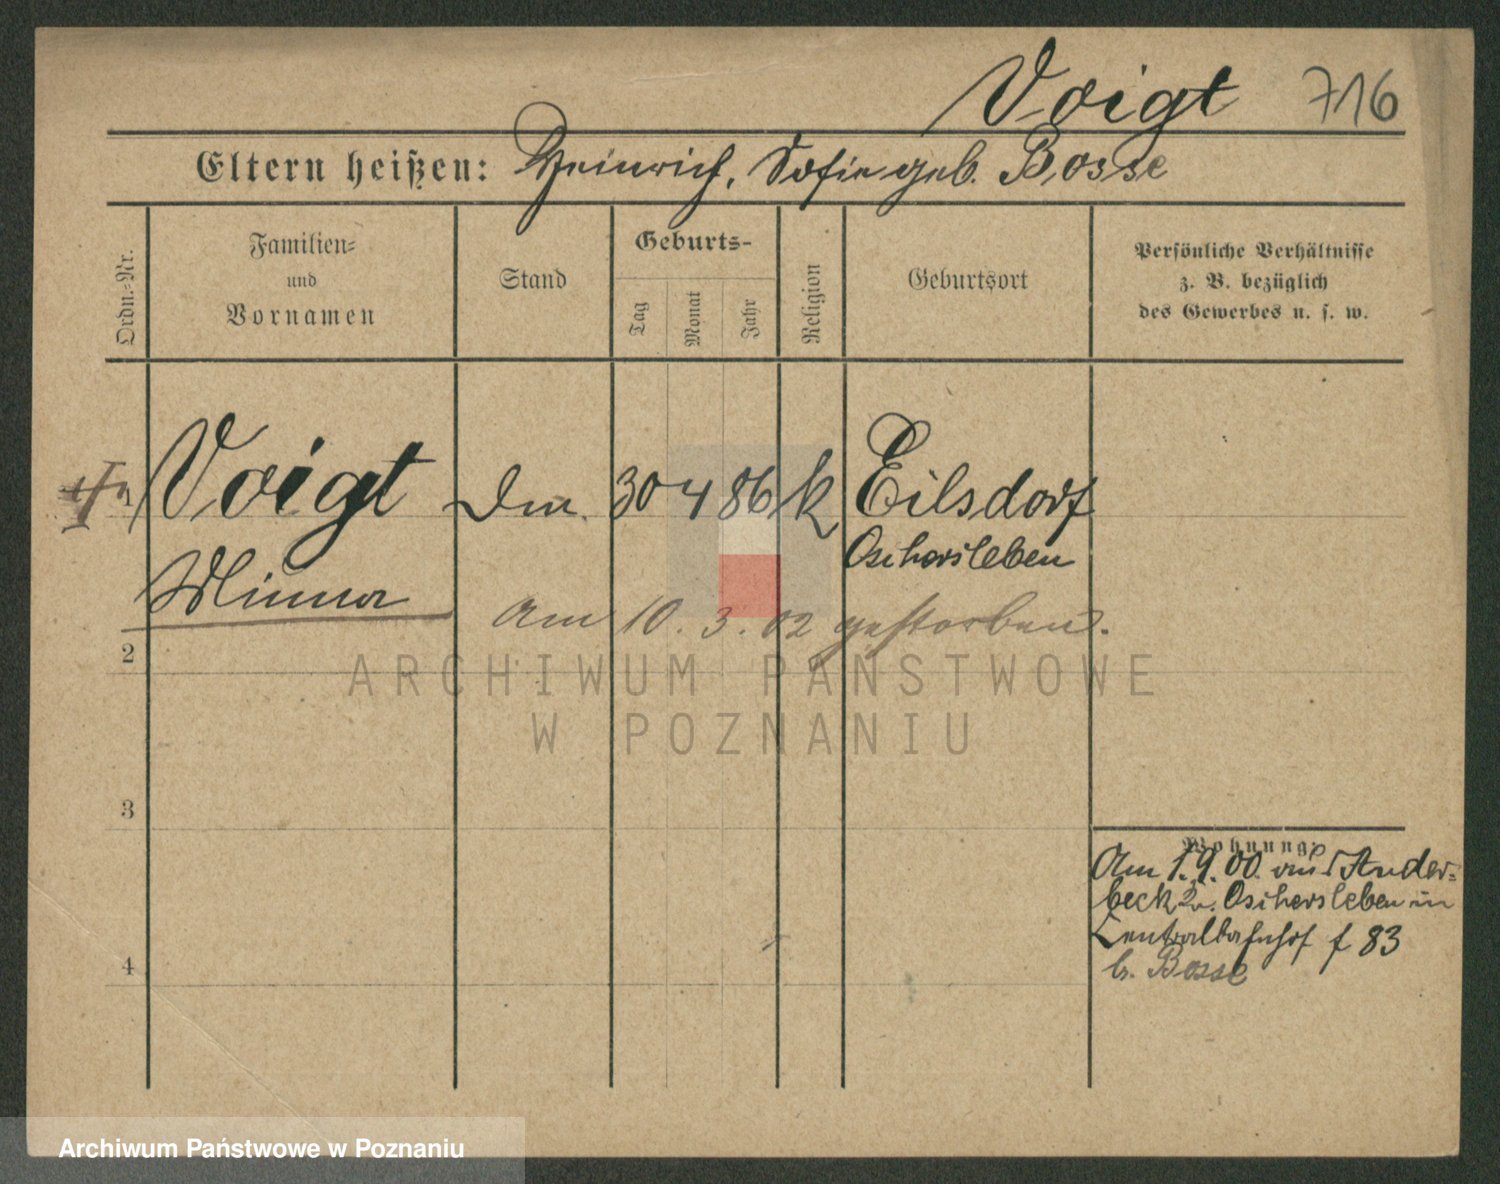 Voigt 716
Eltern heißen: Heinrich, Sofie geb. Bosse
Ordn.-Nr.
Familien-
und
Vornamen
Stand
Geburts-
Tag
Monat
Jahr
Religion
Geburtsort
Persönliche Verhältnisse
z. B. bezüglich
des Gewerbes u. s. w.
1 Voigt 30 4 86 k Eilsdorf
Oschersleben
Minna
Am 10. 3. 02 gestorben.
2
ARCHIWUM PAŃSTWOWE
W POZNANIU
3
Wohnung:
Am 1.9.00 aus Ander-
beck Oschersleben in
Centralbahnhof f 83
b. Bosse
4
Archiwum Państwowe w Poznaniu